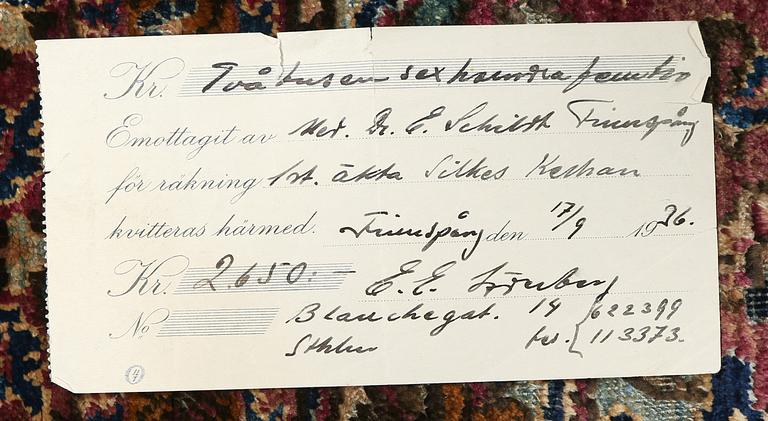 Kr. Två tusen sex hundra femtio
Emottagit av Med. Dr. E. Schildt Finnspång
för räkning 1st. äkta Silkes Keshan
kvitteras härmed. Finnspång den 17/9 1936.
Kr. 2.650:- E. E.
No Blanchegat. 14 622399
Sthlm 113373.